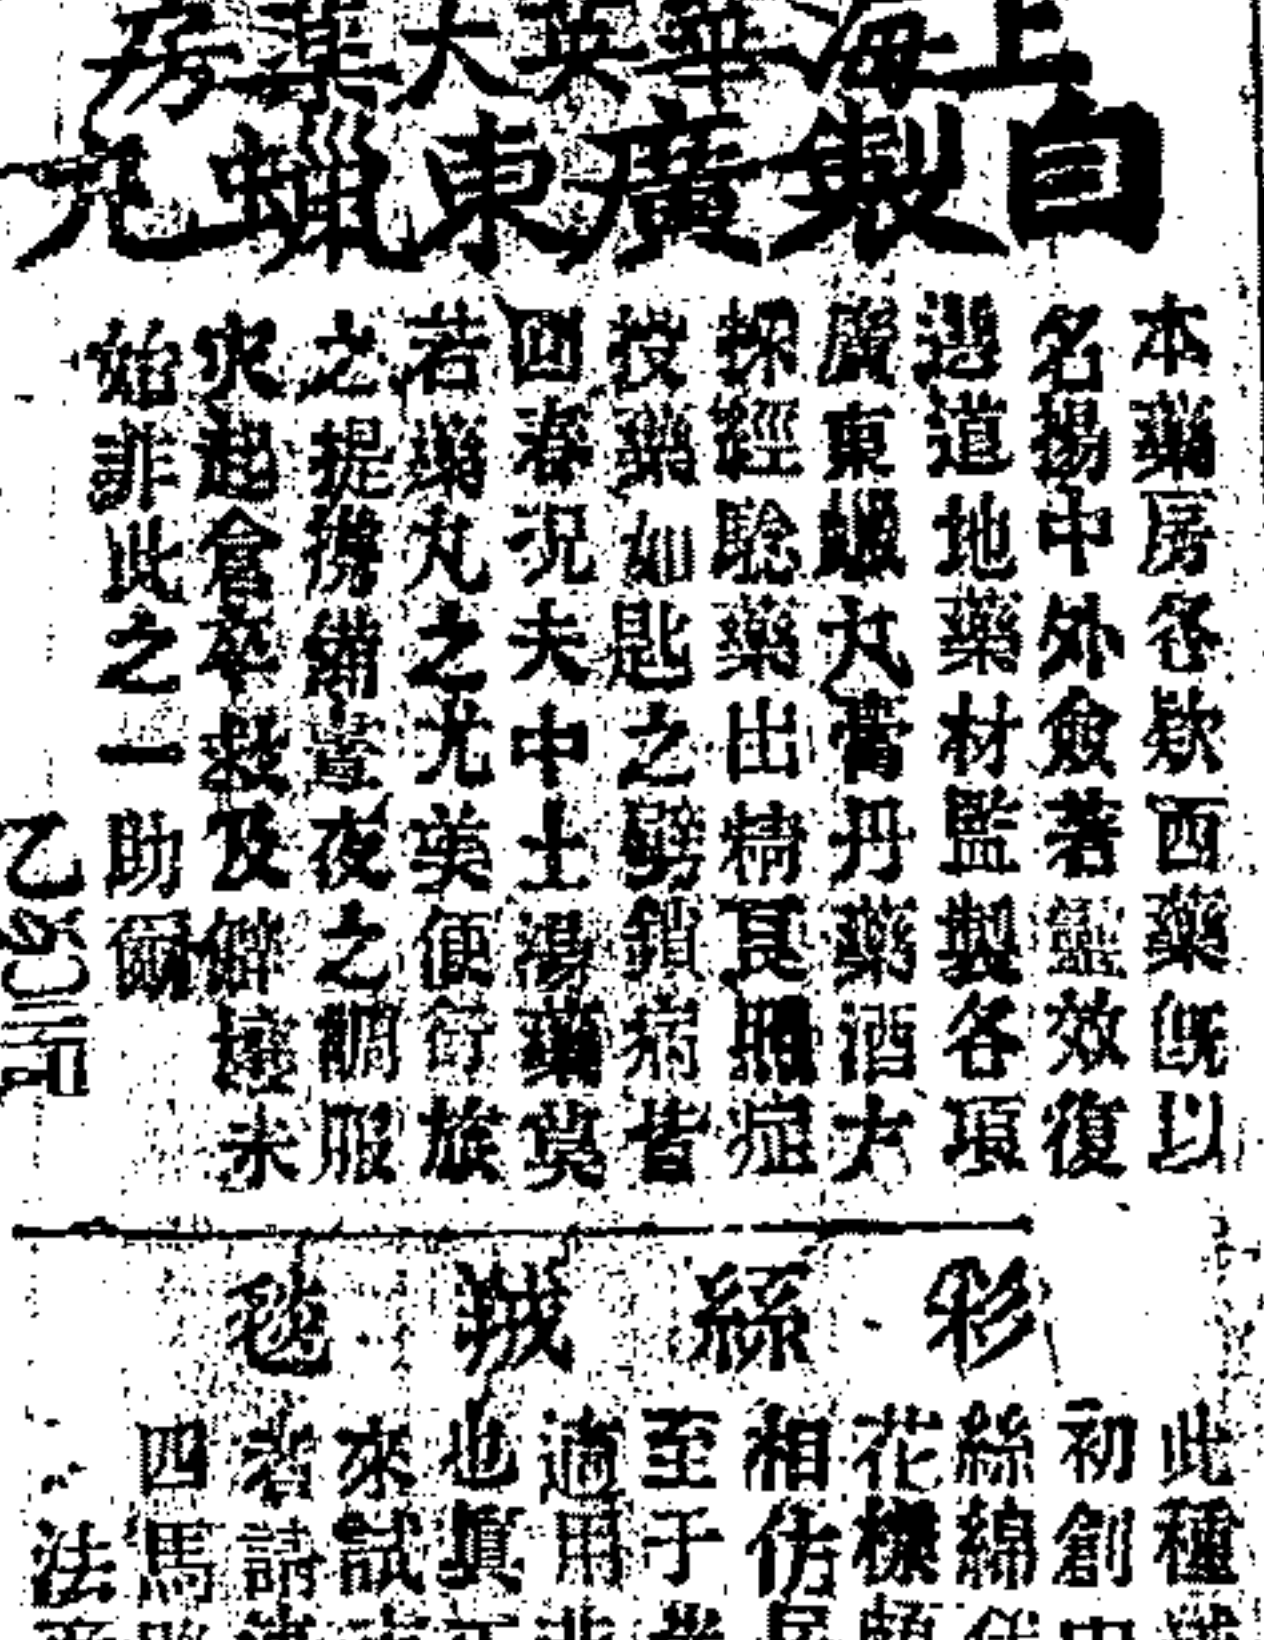 上海華英大薬房
自製廣東蠟丸
本藥房各欵西藥旣以
名揚中外僉著靈效復
選道地藥材監製各項
廣東蠟丸膏丹藥酒大
採經驗藥出精良照症
投藥如匙之劈鎖病皆
回春况夫中土湯藥莫
若藥丸之尤美便行旅
之提攜備宵夜之調服
火起倉卒救及僻壤未
始非此之一助爾
彩絲絨毯
此種
初創
絲綿
花樣
相仿
至于
適用
也眞
來試
者請
四馬
法